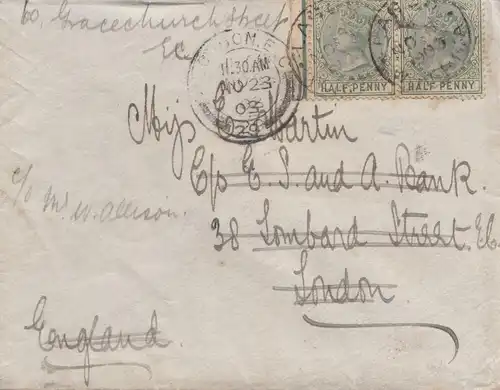 60, Gracechurch Street
E.C.
LONDON. E.C
11.30 AM
NO 23
03
29
HALF-PENNY
HALF-PENNY
Miss Martin
C/o E. S. and A. Bank.
38 Lombard Street. E.C.
London
c/o Mr W. Allison.
England